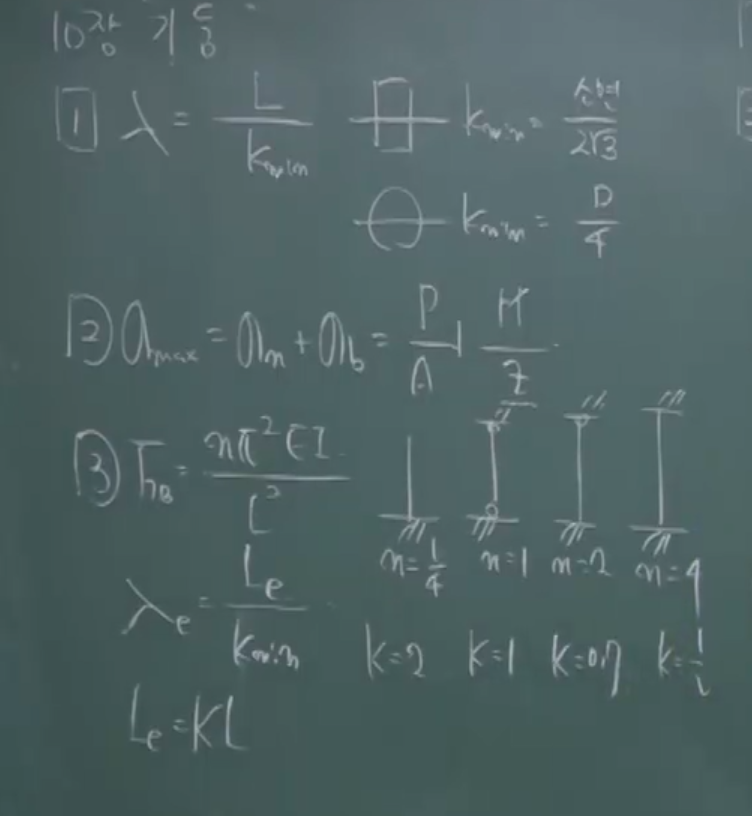 10장 기둥
① λ = L / kmin kmin = 단변 / 2√3
kmin = D / 4
② σmax = σn + σb = P / A + M / Z
③ FB = nπ²EI / L²
n = 1/4 n = 1 n = 2 n = 4
λe = Le / kmin k = 2 k = 1 k = 0.7 k = 1/2
Le = KL